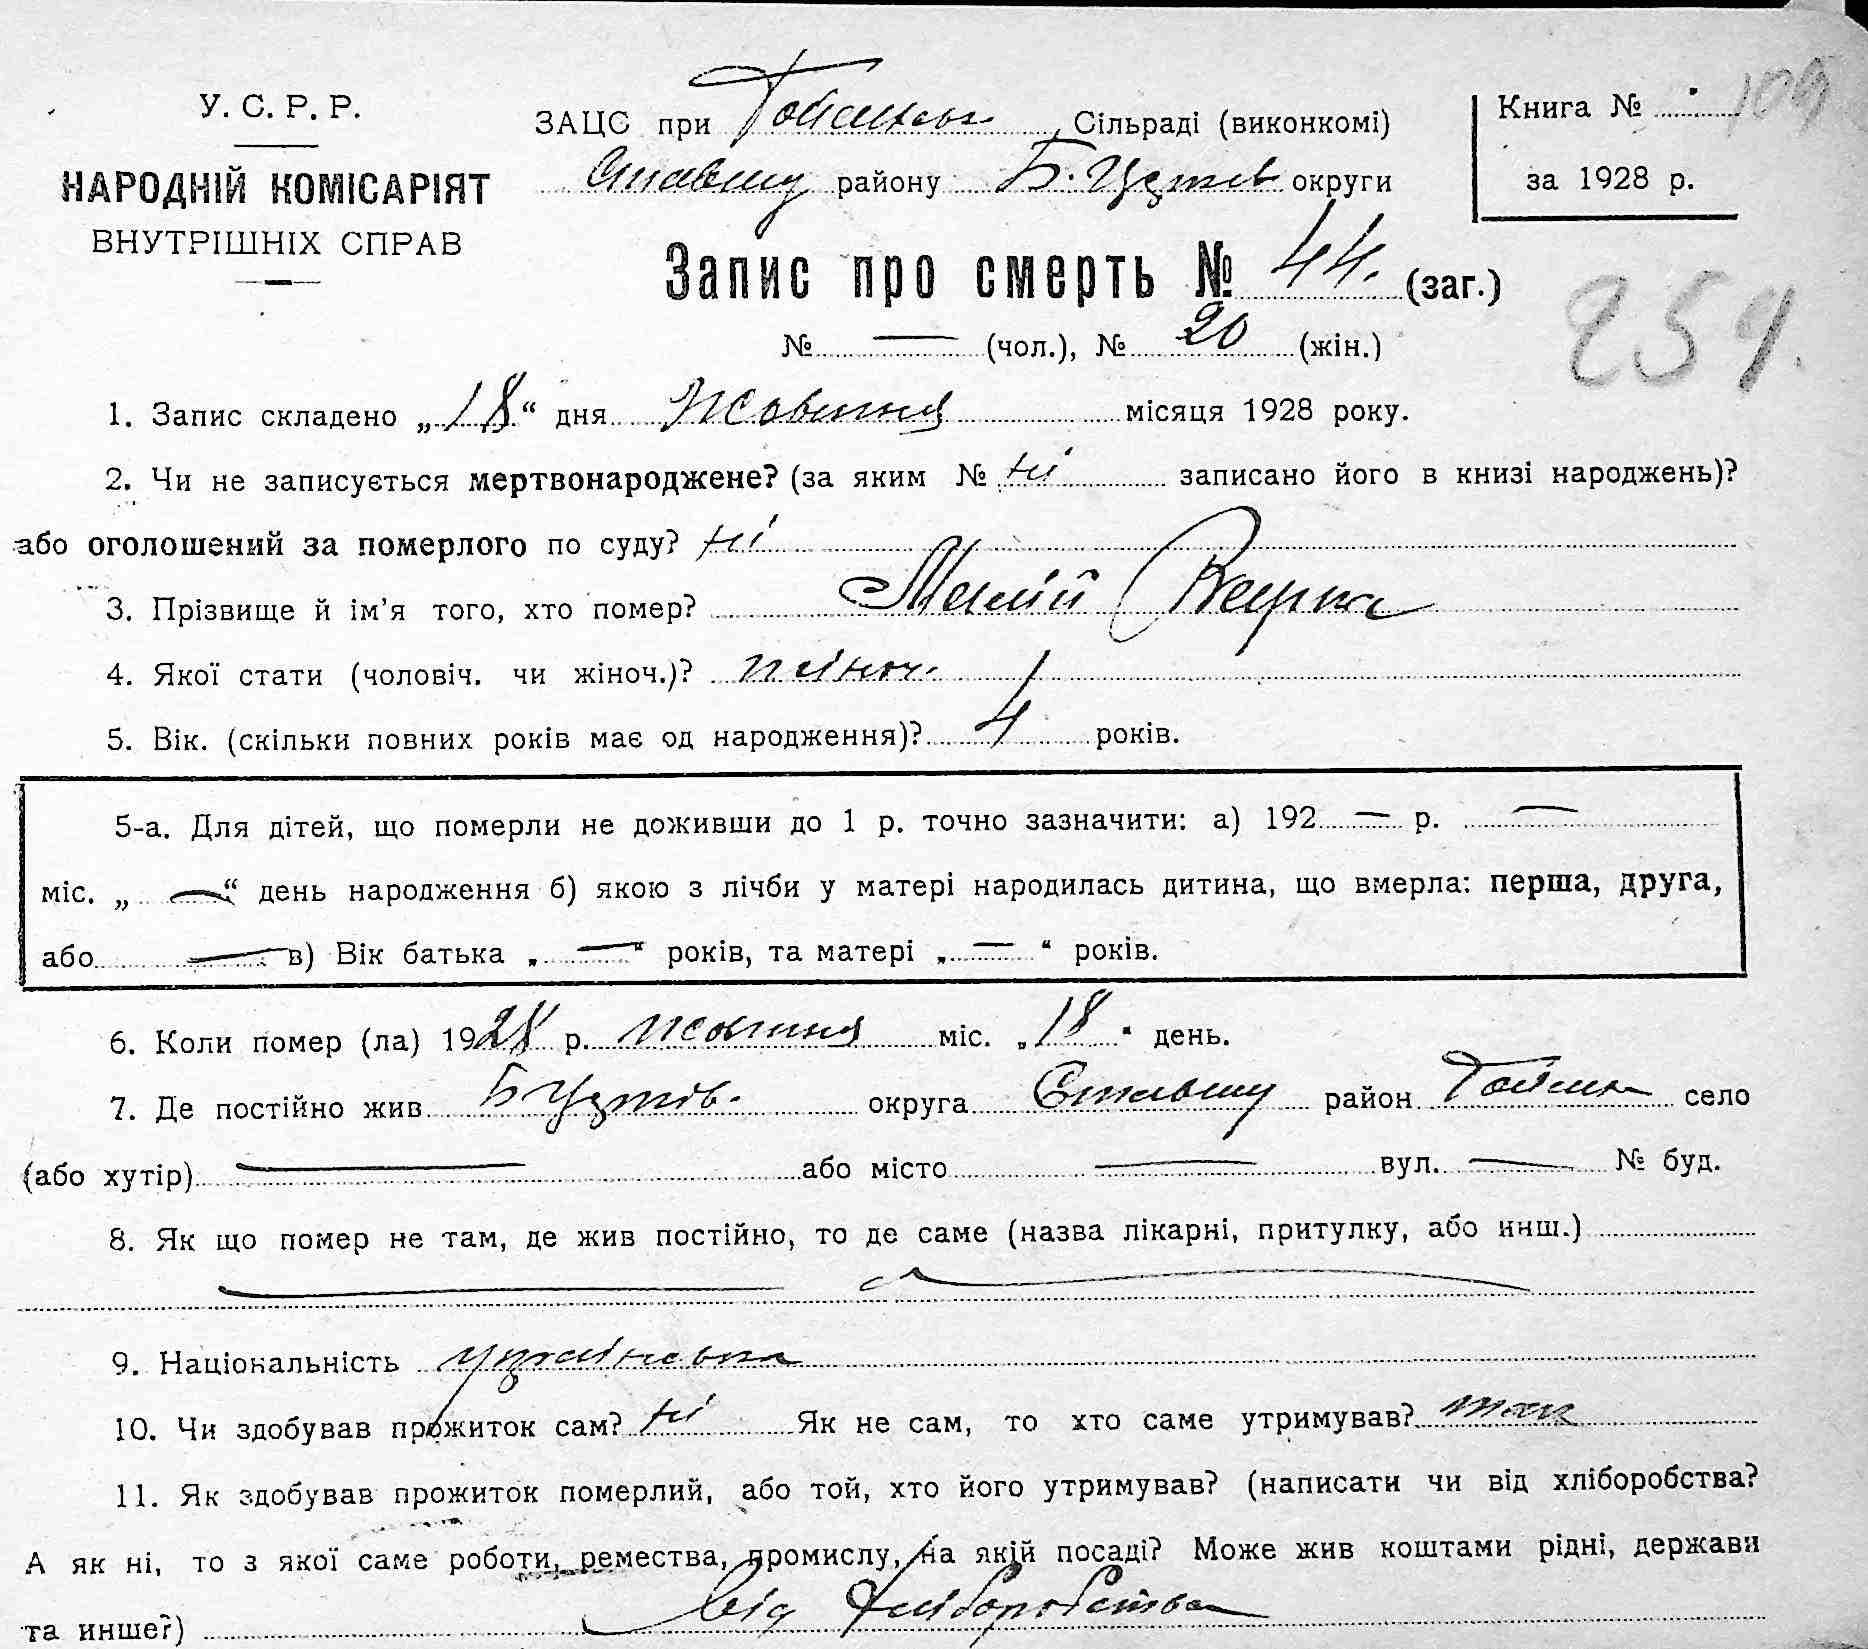 109
У. С. Р. Р.
НАРОДНІЙ КОМІСАРІЯТ
ВНУТРІШНІХ СПРАВ
ЗАЦС при Сільраді (виконкомі)
району Б. Церків округи
Книга №
за 1928 р.
Запис про смерть № 44. (заг.)
№ — (чол.), № 20 (жін.)
259.
1. Запис складено „18“ дня Жовтня місяця 1928 року.
2. Чи не записується мертвонароджене? (за яким № ні записано його в книзі народжень)?
або оголошений за померлого по суду? ні
3. Прізвище й ім’я того, хто помер?
4. Якої стати (чоловіч. чи жіноч.)? жіноч.
5. Вік. (скільки повних років має од народження)? 4 років.
5-а. Для дітей, що померли не доживши до 1 р. точно зазначити: а) 192 — р. —
міс. „ — “ день народження б) якою з лічби у матері народилась дитина, що вмерла: перша, друга,
або — в) Вік батька „ — “ років, та матері „ — “ років.
6. Коли помер (ла) 1928 р. жовтня міс. „18“ день.
7. Де постійно жив Б Церків. округа район село
(або хутір) — або місто — вул. — № буд.
8. Як що помер не там, де жив постійно, то де саме (назва лікарні, притулку, або инш.)
9. Національність українська
10. Чи здобував прожиток сам? ні Як не сам, то хто саме утримував?
11. Як здобував прожиток померлий, або той, хто його утримував? (написати чи від хліборобства?
А як ні, то з якої саме роботи, ремества, промислу, на якій посаді? Може жив коштами рідні, держави
та инше?) від хліборобства